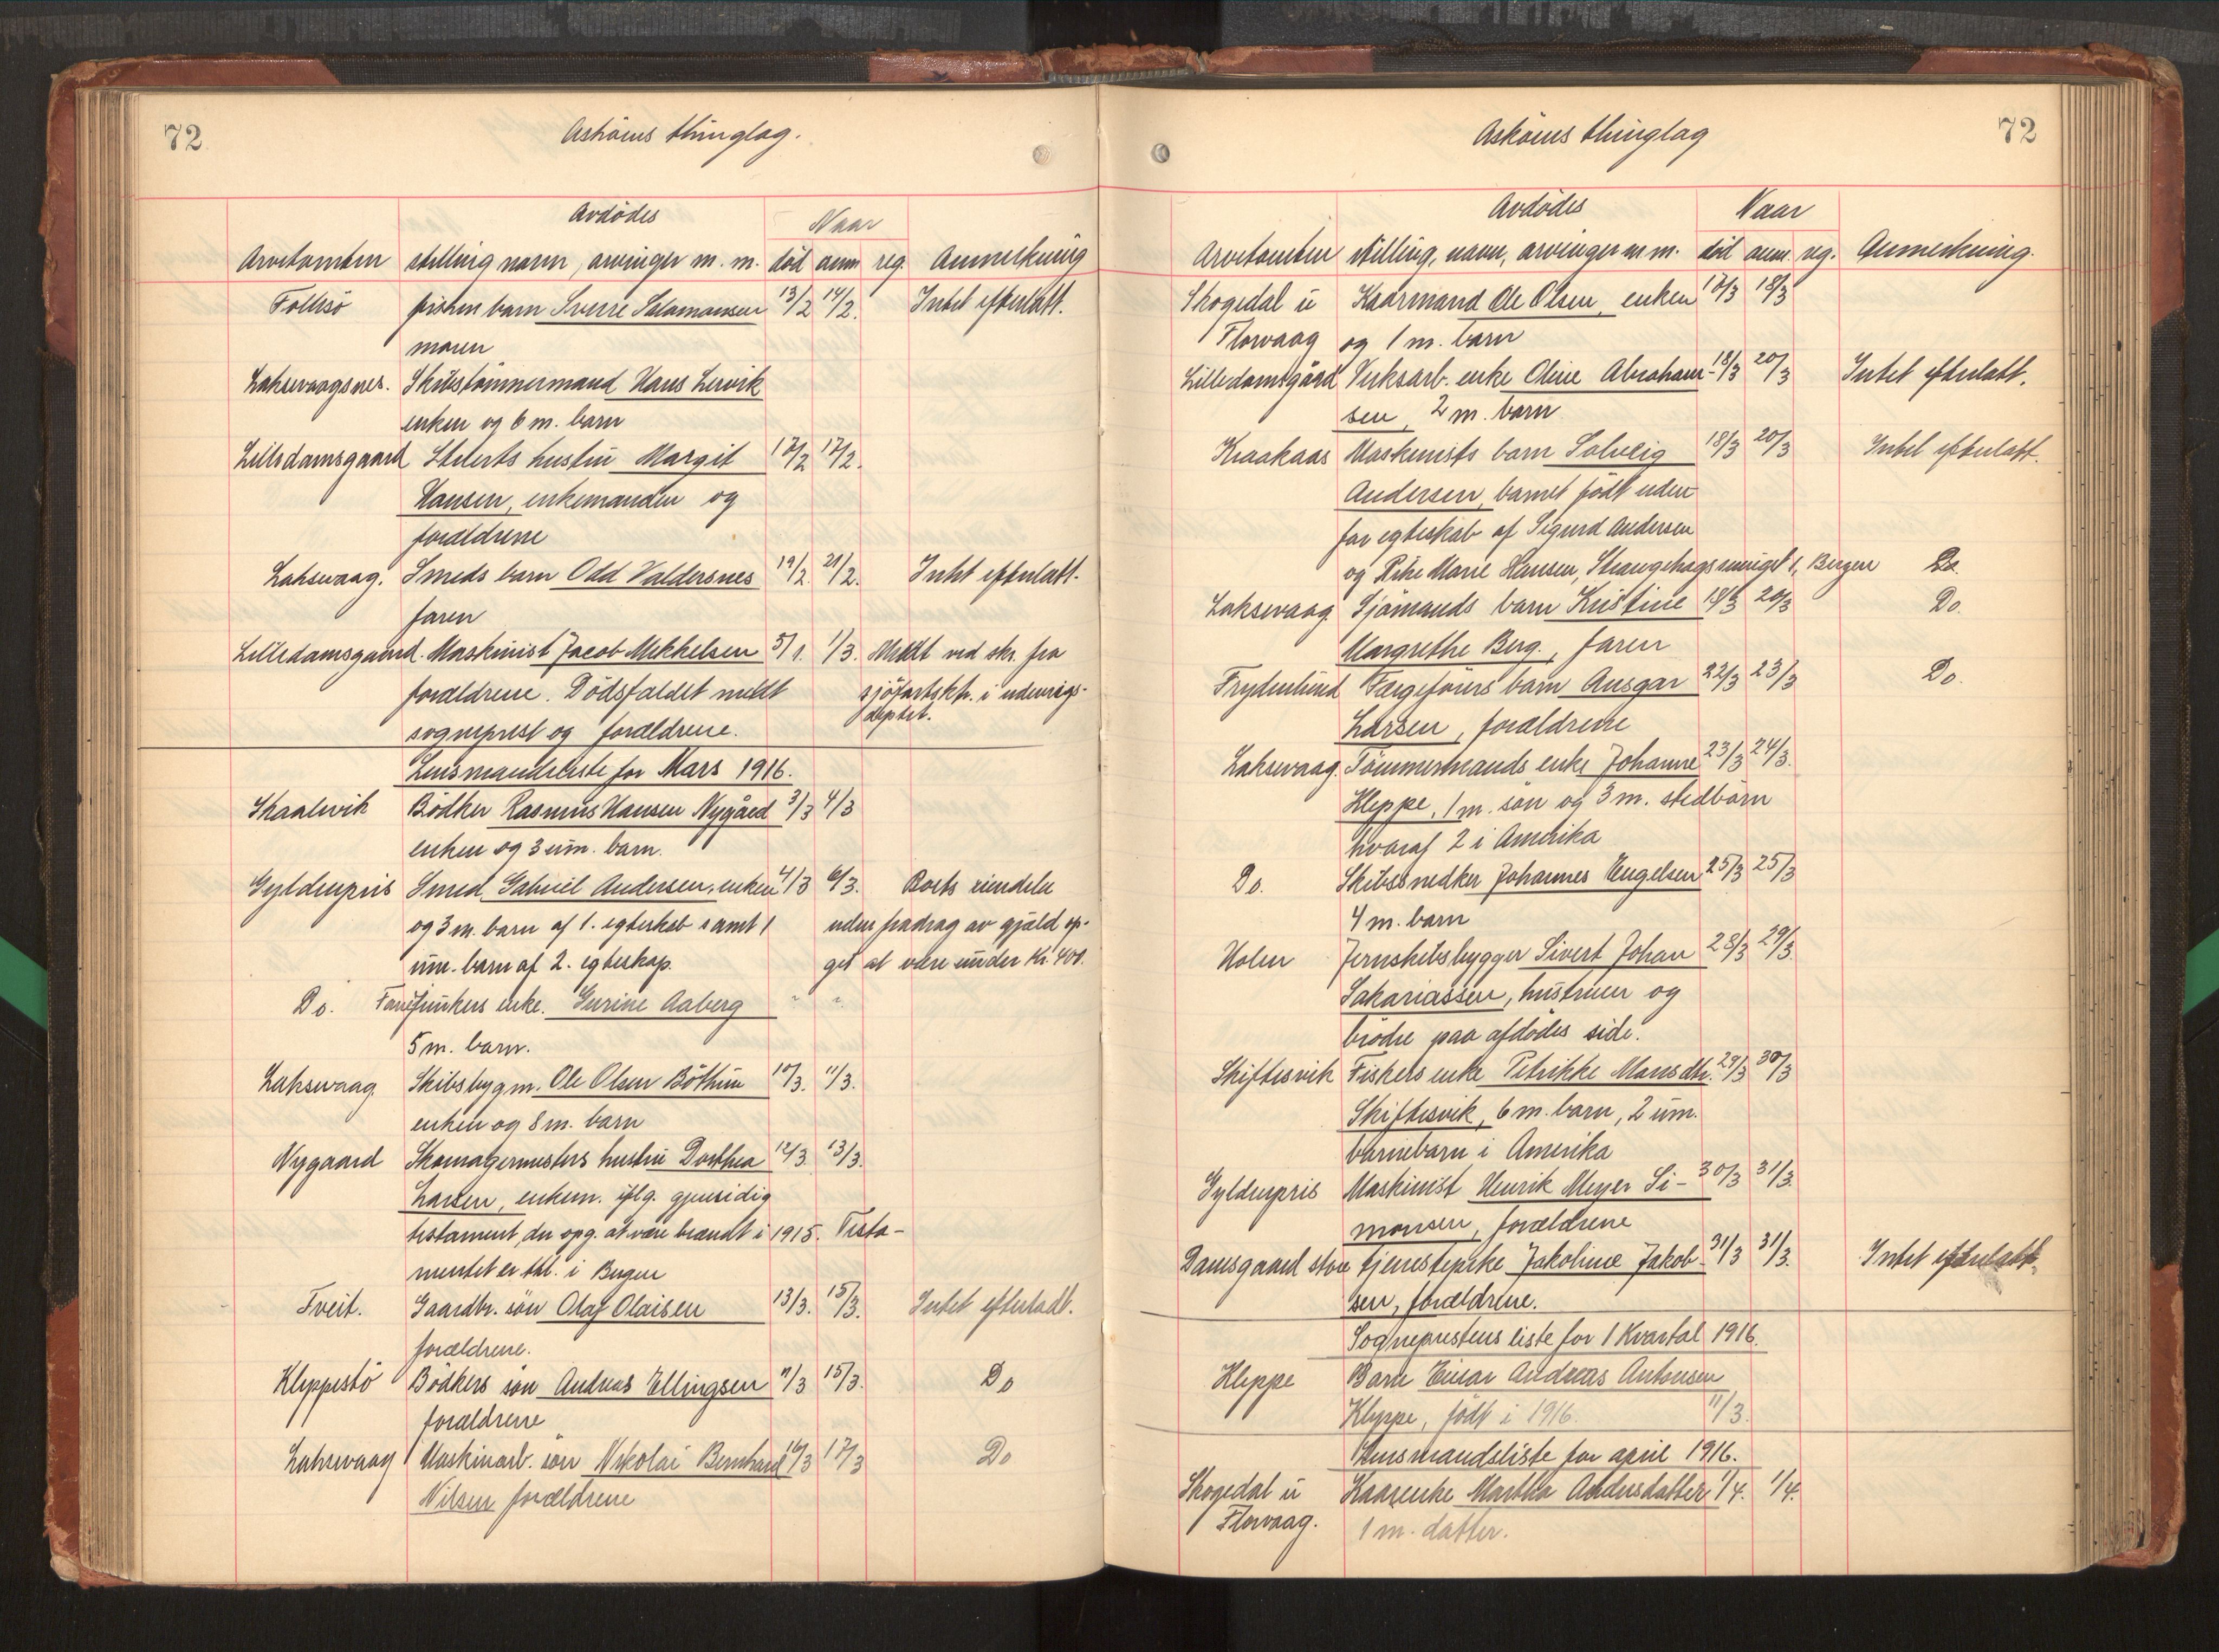 72
Askøens thinglag.
Avdødes
Naar
Arvetomten stilling navn, arvinger m. m. død anm reg. Anmerkning
Follesø fiskers barn Sverre Salamonsen 13/2 14/2. Intet efterlatt.
moren
Laksevaagsnes. Skibstømmermand Hans Lervik
enken og 6 m. barn
Lilledamsgaard Stuerts hustru Margit 17/2 17/2.
Hansen, enkemanden og
forældrene
Laksevaag. Smeds barn Odd Valdersnes 19/2. 21/2. Intet efterlatt.
faren
Lilledamsgaard. Maskinist Jacob Mikkelsen 5/1. 1/3. Meldt ved skr. fra
forældrene. Dødsfaldet meldt sjøfartsktr. i utenrigs-
sogneprest og forældrene. deptet.
Lensmandsliste for Mars 1916.
Skaalevik Bødker Rasmus Hansen Nygård 3/3 4/3
enken og 3 um. barn.
Gyldenpris Smed Gabriel Andersen, enken 4/3 6/3. Boets eiendele
og 3 m. barn af 1. egteskab samt 1 uden fradrag av gjæld op-
um. barn af 2. egteskap. get at være under Kr. 400.
Do. enke. Gurine Aaberg " "
5 m. barn.
Laksevaag. Skibsbygm. Ole Olsen Bøthun 10/3. 11/3.
enken og 8 m. barn
Nygaard Skomagermesters hustru Dorthea 12/3 13/3.
Larsen, enkem. iflg. gjensidig
testament, der opg. at være brændt i 1915. Testa-
mentet er thl. i Bergen
Tveit. Gaardbr. søn Olaf Olaisen 13/3. 15/3. Intet efterladt.
forældrene.
Kleppestø Bødkers søn Andreas Ellingsen 11/3 15/3. Do
forældrene
Laksevaag Maskinarb. søn Nikolai Bernhard 16/3 17/3 Do
Nilsen forældrene
Askøens thinglag
72
Avdødes
Naar
Arvetomten stilling, navn, arvinger m. m. död anm. reg. Anmerkning.
Skogedal u Kaarmand Ole Olsen, enken 17/3 18/3
Florvaag og 1 m. barn
Lilledamsgård Verksarb. enke Oline Abraham- 18/3 20/3 Intet efterlatt.
sen, 2 m. barn
Kraakaas Maskinists barn Solveig 18/3 20/3 Intet efterlatt.
Andersen, barnet født uden-
for egteskab af Sigurd Andersen
og Marie Hansen, Strangehagesmuget 1, Bergen Do.
Laksevaag. Sjømands barn Kristine 18/3 20/3 Do.
Margrethe Berg., faren
Frydenlund Færgeførers barn Ansgar 22/3 23/3 Do.
Larsen, forældrene
Laksevaag. Tømmermands enke Johanne 23/3 24/3.
Kleppe, 1 m. søn og 3 m. stedbørn
hvoraf 2 i Amerika
Do. Skibssnedker Johannes Engelsen 25/3 25/3
4 m. barn
Holen Jernskibsbygger Sivert Johan 28/3 29/3.
Sakariassen, hustruen og
brødre paa afdødes side.
Skiftesvik Fiskers enke Petrikke Monsdtr. 29/3 30/3
Skiftesvik, 6 m. barn, 2 um.
barnebarn i Amerika
Gyldenpris Maskinist Henrik Meyer Si- 30/3 31/3.
monsen, forældrene
Damsgaard store tjenestepike Jakoline Jakob- 31/3 31/3. Intet efterlatt.
sen, forældrene.
Sogneprestens liste for 1 Kvartal 1916.
Kleppe Barn Einar Andreas Antonsen
Kleppe, født i 1916. 11/3.
Lensmandsliste for april 1916.
Skogedal u Kaarenke Martha Andersdatter 1/4. 1/4.
Florvaag. 1 m. datter.